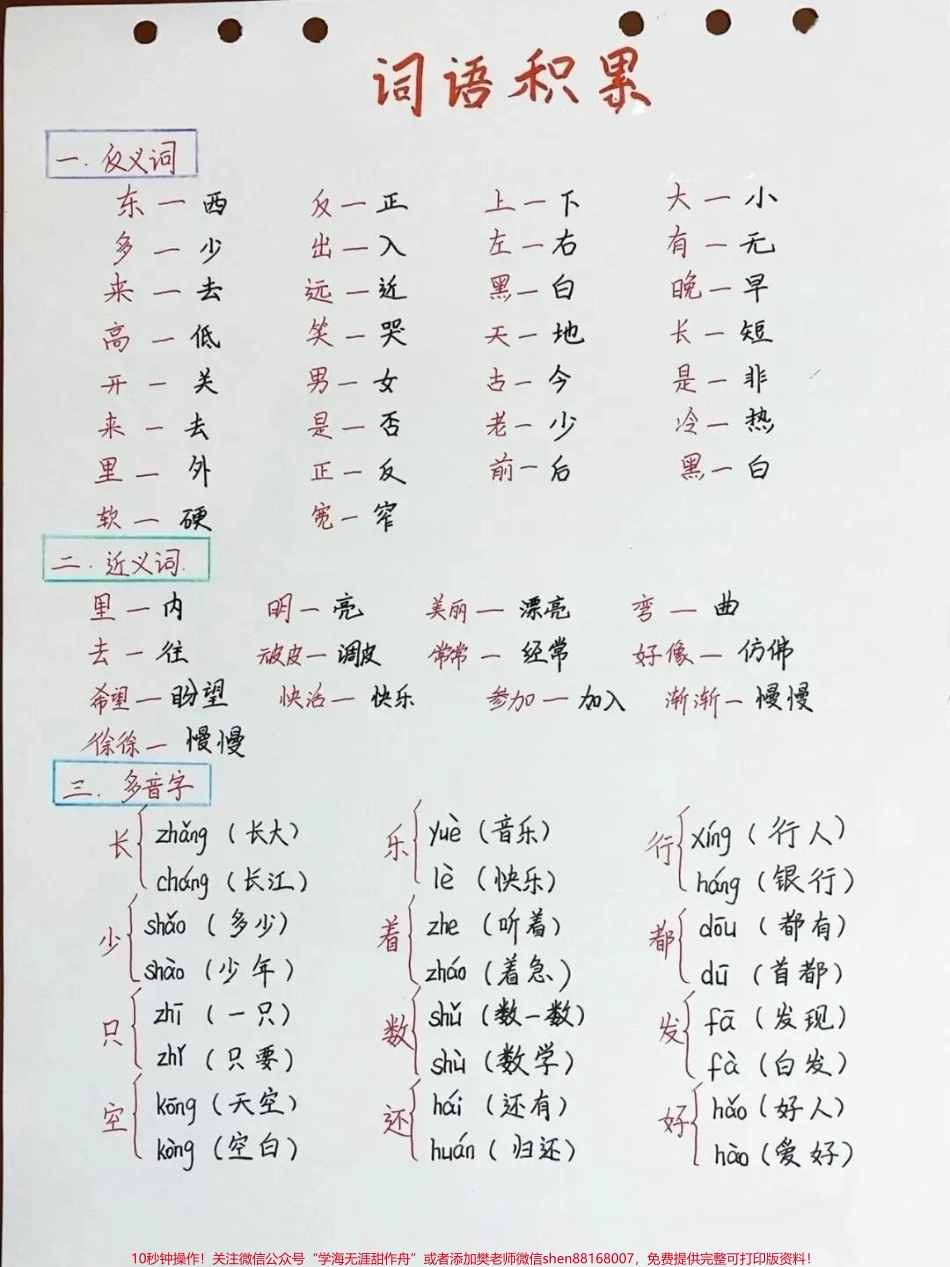 词语积累
一.反义词
东一西 反一正 上一下 大一小
多一少 出一入 左一右 有一无
来一去 远一近 黑一白 晚一早
高一低 笑一哭 天一地 长一短
开一关 男一女 古一今 是一非
来一去 是一否 老一少 冷一热
里一外 正一反 前一后 黑一白
软一硬 宽一窄
二.近义词.
里一内 明一亮 美丽一漂亮 弯一曲
去一往 顽皮一调皮 常常一经常 好像一仿佛
希望一盼望 快活一快乐 参加一加入 渐渐一慢慢
徐徐一慢慢
三.多音字
长 zhǎng (长大) 乐 yuè (音乐) 行 xíng (行人)
cháng (长江) lè (快乐) háng (银行)
少 shǎo (多少) 着 zhe (听着) 都 dōu (都有)
shào (少年) zháo (着急) dū (首都)
只 zhī (一只) 数 shǔ (数一数) 发 fā (发现)
zhǐ (只要) shù (数学) fà (白发)
空 kōng (天空) 还 hái (还有) 好 hǎo (好人)
kòng (空白) huán (归还) hào (爱好)
10秒钟操作！关注微信公众号“学海无涯甜作舟”或者添加樊老师微信shen88168007，免费提供完整可打印版资料！